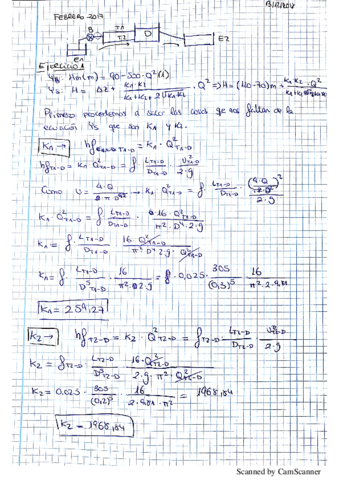 FEBRERO 2017
BIRIADIV
B T1 D E2
T2
E1
EJERCICIO 1
YB: Hm(m) = 90 - 550·Q²(1)
Ys: H = ΔZ + K1·K2 / K1+K2+2√K1·K2 · Q² → H = (140-70)m + K1·K2·Q² / K1+K2+2√K1·K2
Primero procedemos a sacar las cosas que nos faltan de la
ecuación Ys que son K1 y K2.
K1 → hf T1-D = K1·Q² T1-D
hf T1-D = K1·Q² T1-D = f · L T1-D / D T1-D · U² T1-D / 2·g
Como U = 4·Q / π·D² → K1·Q² T1-D = f · L T1-D / D T1-D · (4·Q / π·D²)² / 2·g
K1·Q² T1-D = f · L T1-D / D T1-D · 16·Q² T1-D / π²·D⁴·2·g
K1 = f · L T1-D / D T1-D · 16·Q² T1-D / π²·D⁴·2·g·Q² T1-D
K1 = f · L T1-D / D⁵ T1-D · 16 / π²·2·g = f·0,025 · 305 / (0,3)⁵ · 16 / π²·2·9,81
K1 = 259,27
K2 → hf T2-D = K2·Q² T2-D = f T2-D · L T2-D / D T2-D · U² T2-D / 2·g
K2 = f T2-D · L T2-D / D⁵ T2-D · 16·Q² T2-D / 2·g·π²·Q² T2-D
K2 = 0,025 · 305 / (0,2)⁵ · 16 / 2·9,81·π² = 1968,84
K2 = 1968,84
Scanned by CamScanner